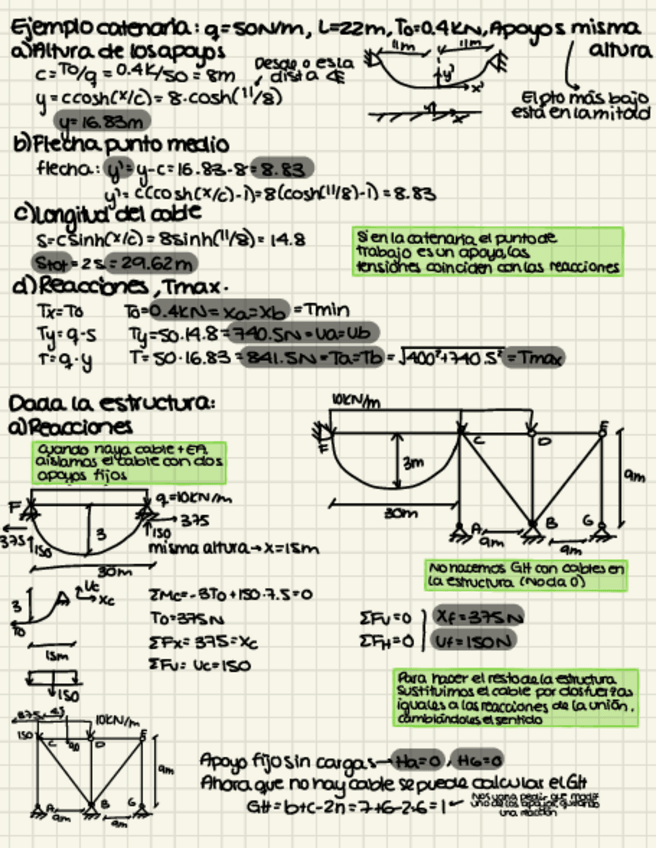 Ejemplo catenaria: q=50N/m, L=22m, To=0.4KN, Apoyos misma altura
a) Altura de los apoyos
11m 11m
c=To/q = 0.4K/50 = 8m
Desde o esta dista
y=c cosh(x/c) = 8·cosh(11/8)
y = 16.83m
y' x'
y x
El pto más bajo
está en la mitad
b) Flecha punto medio
flecha: y' = y-c = 16.83-8 = 8.83
y' = c(cosh(x/c)-1) = 8(cosh(11/8)-1) = 8.83
c) Longitud del cable
s=c sinh(x/c) = 8 sinh(11/8) = 14.8
Stot = 2s = 29.62m
Si en la catenaria el punto de
trabajo es un apoyo, las
tensiones coinciden con las reacciones
d) Reacciones, Tmax.
Tx=To To=0.4KN = Xa=Xb = Tmin
Ty=q·s Ty=50·14.8 = 740.5N = Ua=Ub
T=q·y T=50·16.83 = 841.5N = Ta=Tb = √400²+740.5² = Tmax
Dada la estructura:
a) Reacciones
10KN/m
F C D E
3m
30m
9m
A B G
9m 9m
Cuando haya cable + EA
aislamos el cable con dos
apoyos fijos
F q=10KN/m
375
375 150 3 150
misma altura → x=15m
30m
No hacemos GH con cables en
la estructura (No da 0)
3 To Uc Xc
15m
150
ΣMc=-3To+150·7.5=0
To=375N
ΣFx = 375=Xc
ΣFv: Uc=150
ΣFv=0 Xf=375N
ΣFH=0 Uf=150N
Para hacer el resto de la estructura
sustituimos el cable por dos fuerzas
iguales a las reacciones de la unión,
cambiándoles el sentido
375 4.5 10KN/m
150 C 90 D E
9m
A B G
9m 9m
Apoyo fijo sin cargas → Ha=0, HG=0
Ahora que no hay cable se puede calcular el GH
GH = b+c-2n = 7+6-2·6 = 1
una reacción